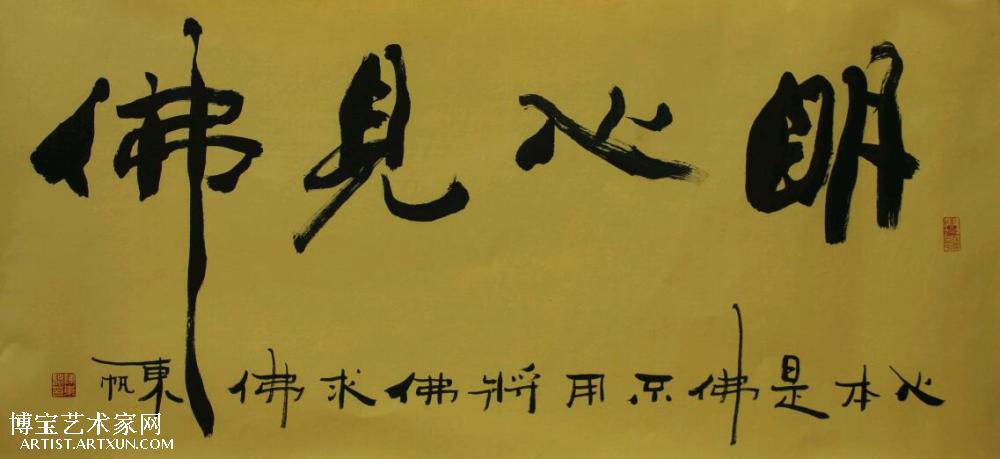 明心見佛
心本是佛不用將佛求佛 東帆
博宝艺术家网
ARTIST.ARTXUN.COM